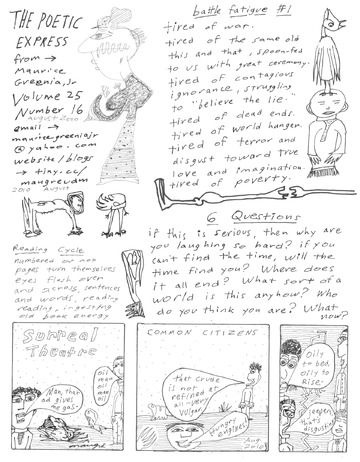 THE POETIC
EXPRESS
from →
Maurice
Greenia, Jr
Volume 25
Number 16
August 2010
email →
mauricegreeniajr
@ yahoo . com
website/blogs
→ tiny.cc/
maugreudm
2010 August
battle fatigue #1
tired of war.
tired of the same old
this and that, spoon-fed
to us with great ceremony.
tired of contagious
ignorance, struggling
to "believe the lie."
tired of dead ends.
tired of world hanger.
tired of terror and
disgust toward true
love and imagination.
tired of poverty.
6 Questions
if this is serious, then why are
you laughing so hard? if you
can't find the time, will the
time find you? Where does
it all end? What sort of a
world is this anyhow? Who
do you think you are? What
now?
Reading Cycle
numbered or not
pages turn themselves
eyes flash over
and across, sentences
and words, reading
reading, ingesting
old book energy
Surreal
Theatre
Man, that
ad gives
me gas!
Oil
man
oil
man
oil
COMMON CITIZENS
that crude
is not at
refined at
all-very
vulgar
hungry
engines!
Aug
2010
Oily
to bed,
oily to
Rise
that's
disgusting